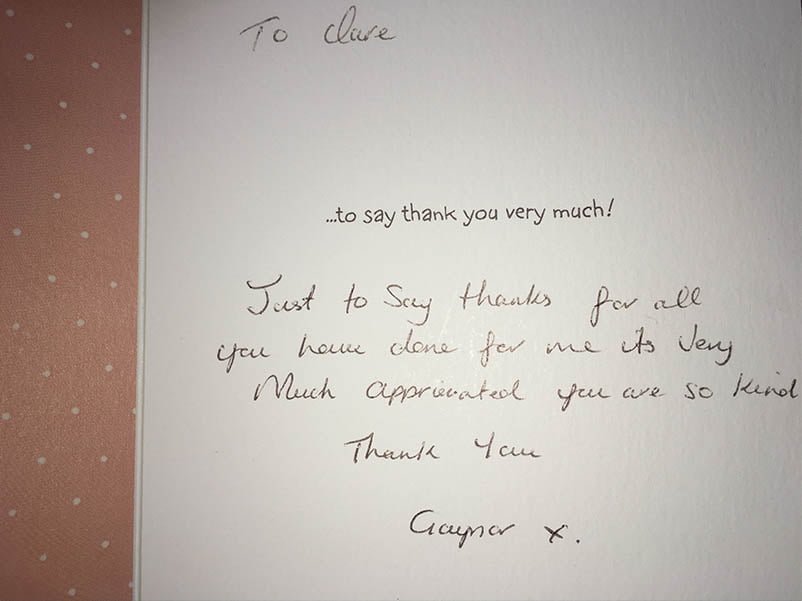 To Clare
...to say thank you very much!
Just to Say thanks for all
you have done for me its Very
Much apprieciated you are so kind
Thank You
Gaynor x.